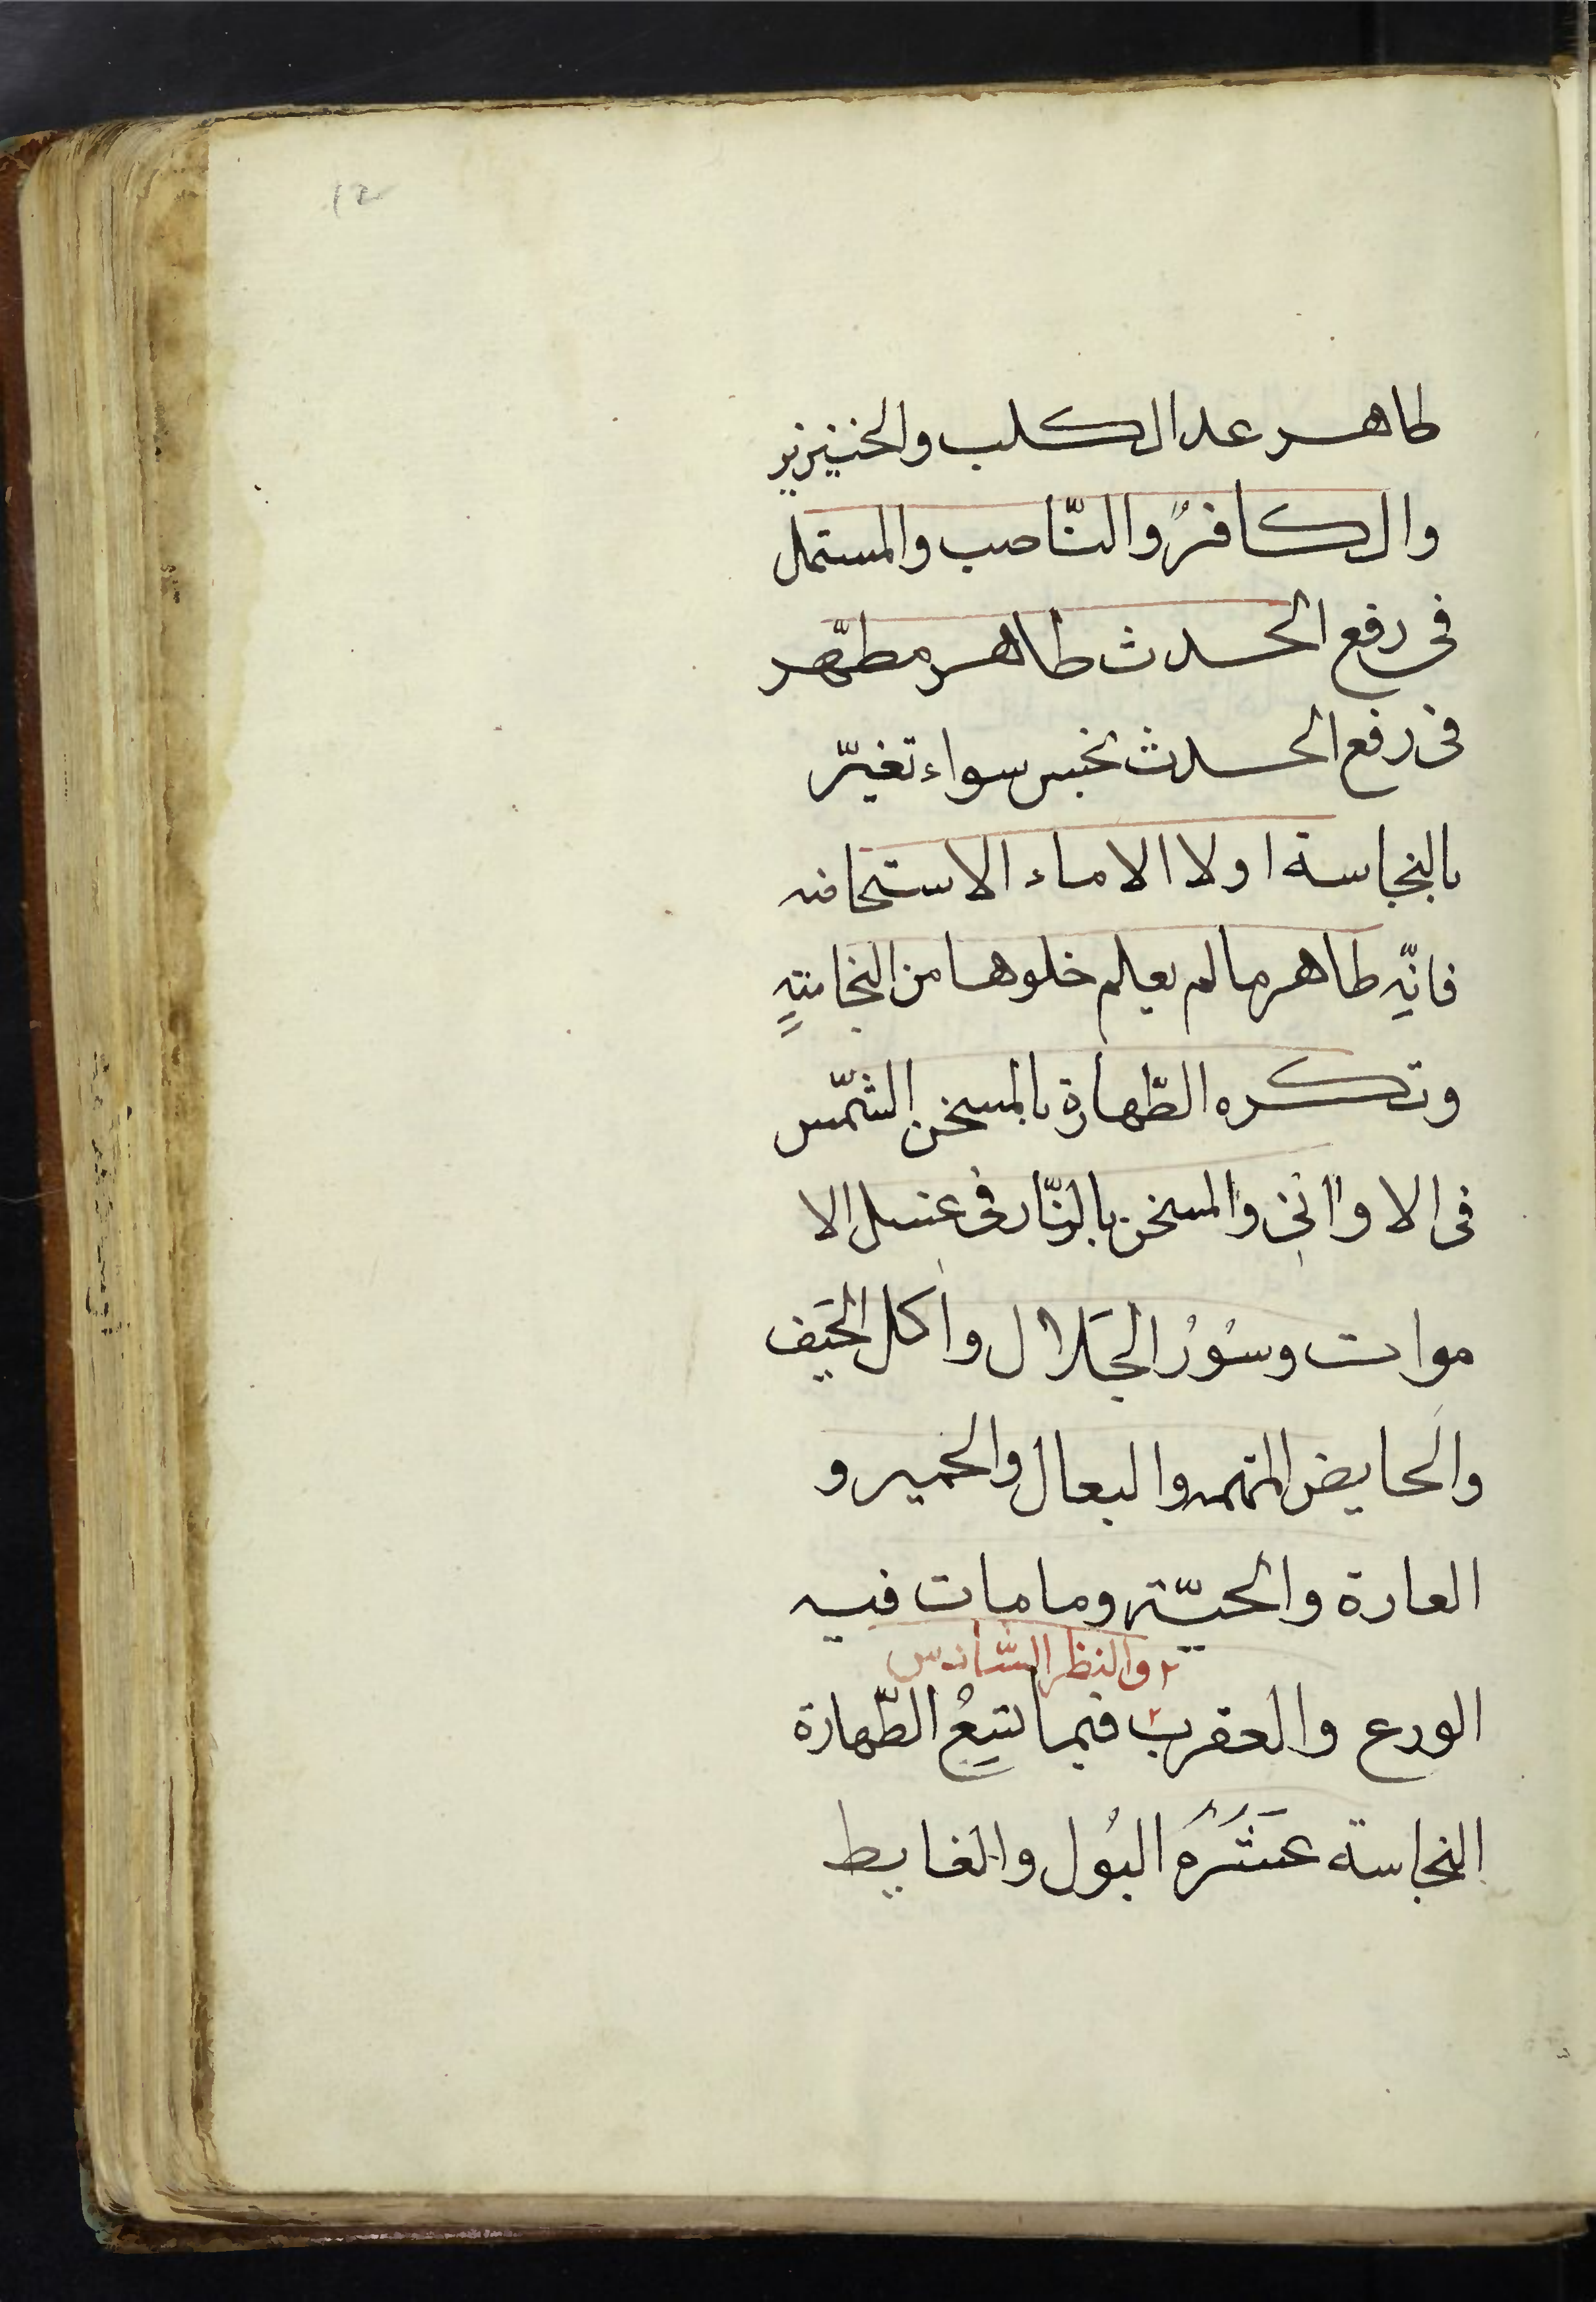 12
طاهر عدا الكلب والخنيزير
والكافرُ والنّاصب والمستمل
فى رفع الحدث طاهر مطهّر
فى رفع الحدث نجس سواء تغيّر
بالنجاسة اولا الا ماء الاستنجا فنه
فانّهِ طاهر ما لم يعلم خلوها من النجا
وتكره الطّهارة بالمسخن الشّمس
فى الاوانى والمسخن بالنّار فى غسل الا
موات وسُوُرُ الجَلال واكل الجَيف
والحايض المتهمه والبعال والحمير و
العارة والحيّة وما مات فيه
والنظر السّادس
الورع والعقرب فيما يتبعُ الطّهارة
النجاسة عَشَرَهُ البُول والغايط